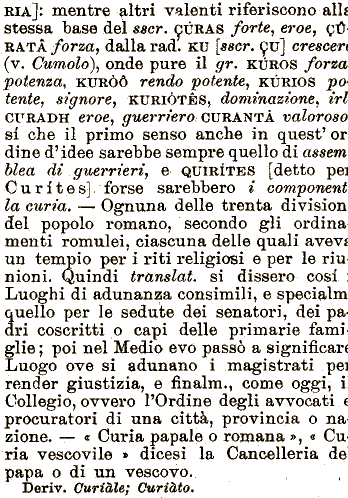 RIA]: mentre altri valenti riferiscono alla
stessa base del sscr. ÇÙRAS forte, eroe, ÇÛ-
RATÂ forza, dalla rad. KU [sscr. ÇU] crescere
(v. Cumolo), onde pure il gr. KÛROS forza
potenza, KURÒÔ rendo potente, KÙRIOS po-
tente, signore, KURIÒTÊS, dominazione, irl
CURADH eroe, guerriero CURANTÂ valoroso
sí che il primo senso anche in quest' or
dine d'idee sarebbe sempre quello di assem
blea di guerrieri, e QUIRÍTES [detto per
Curítes] forse sarebbero i component
la curia. — Ognuna delle trenta division
del popolo romano, secondo gli ordina-
menti romulei, ciascuna delle quali aveva
un tempio per i riti religiosi e per le riu-
nioni. Quindi translat. si dissero cosí :
Luoghi di adunanza consimili, e specialm
quello per le sedute dei senatori, dei pa-
dri coscritti o capi delle primarie fami-
glie; poi nel Medio evo passò a significare
Luogo ove si adunano i magistrati per
render giustizia, e finalm., come oggi, i
Collegio, ovvero l'Ordine degli avvocati e
procuratori di una città, provincia o na-
zione. — « Curia papale o romana », « Cu-
ria vescovile » dicesi la Cancelleria de
papa o di un vescovo.
Deriv. Curiàle; Curiàto.